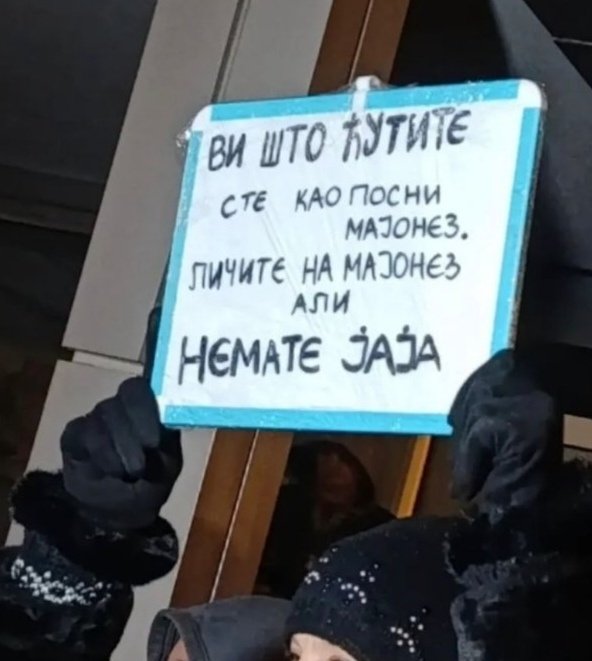 ВИ ШТО ЋУТИТЕ
СТЕ КАО ПОСНИ
МАЈОНЕЗ.
ЛИЧИТЕ НА МАЈОНЕЗ
АЛИ
НЕМАТЕ ЈАЈА